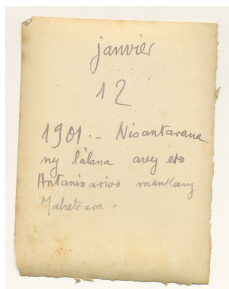 janvier
12
1901.- Nisantarana
ny làlana avy eto
Antanarivo mankany
Mahatsara.